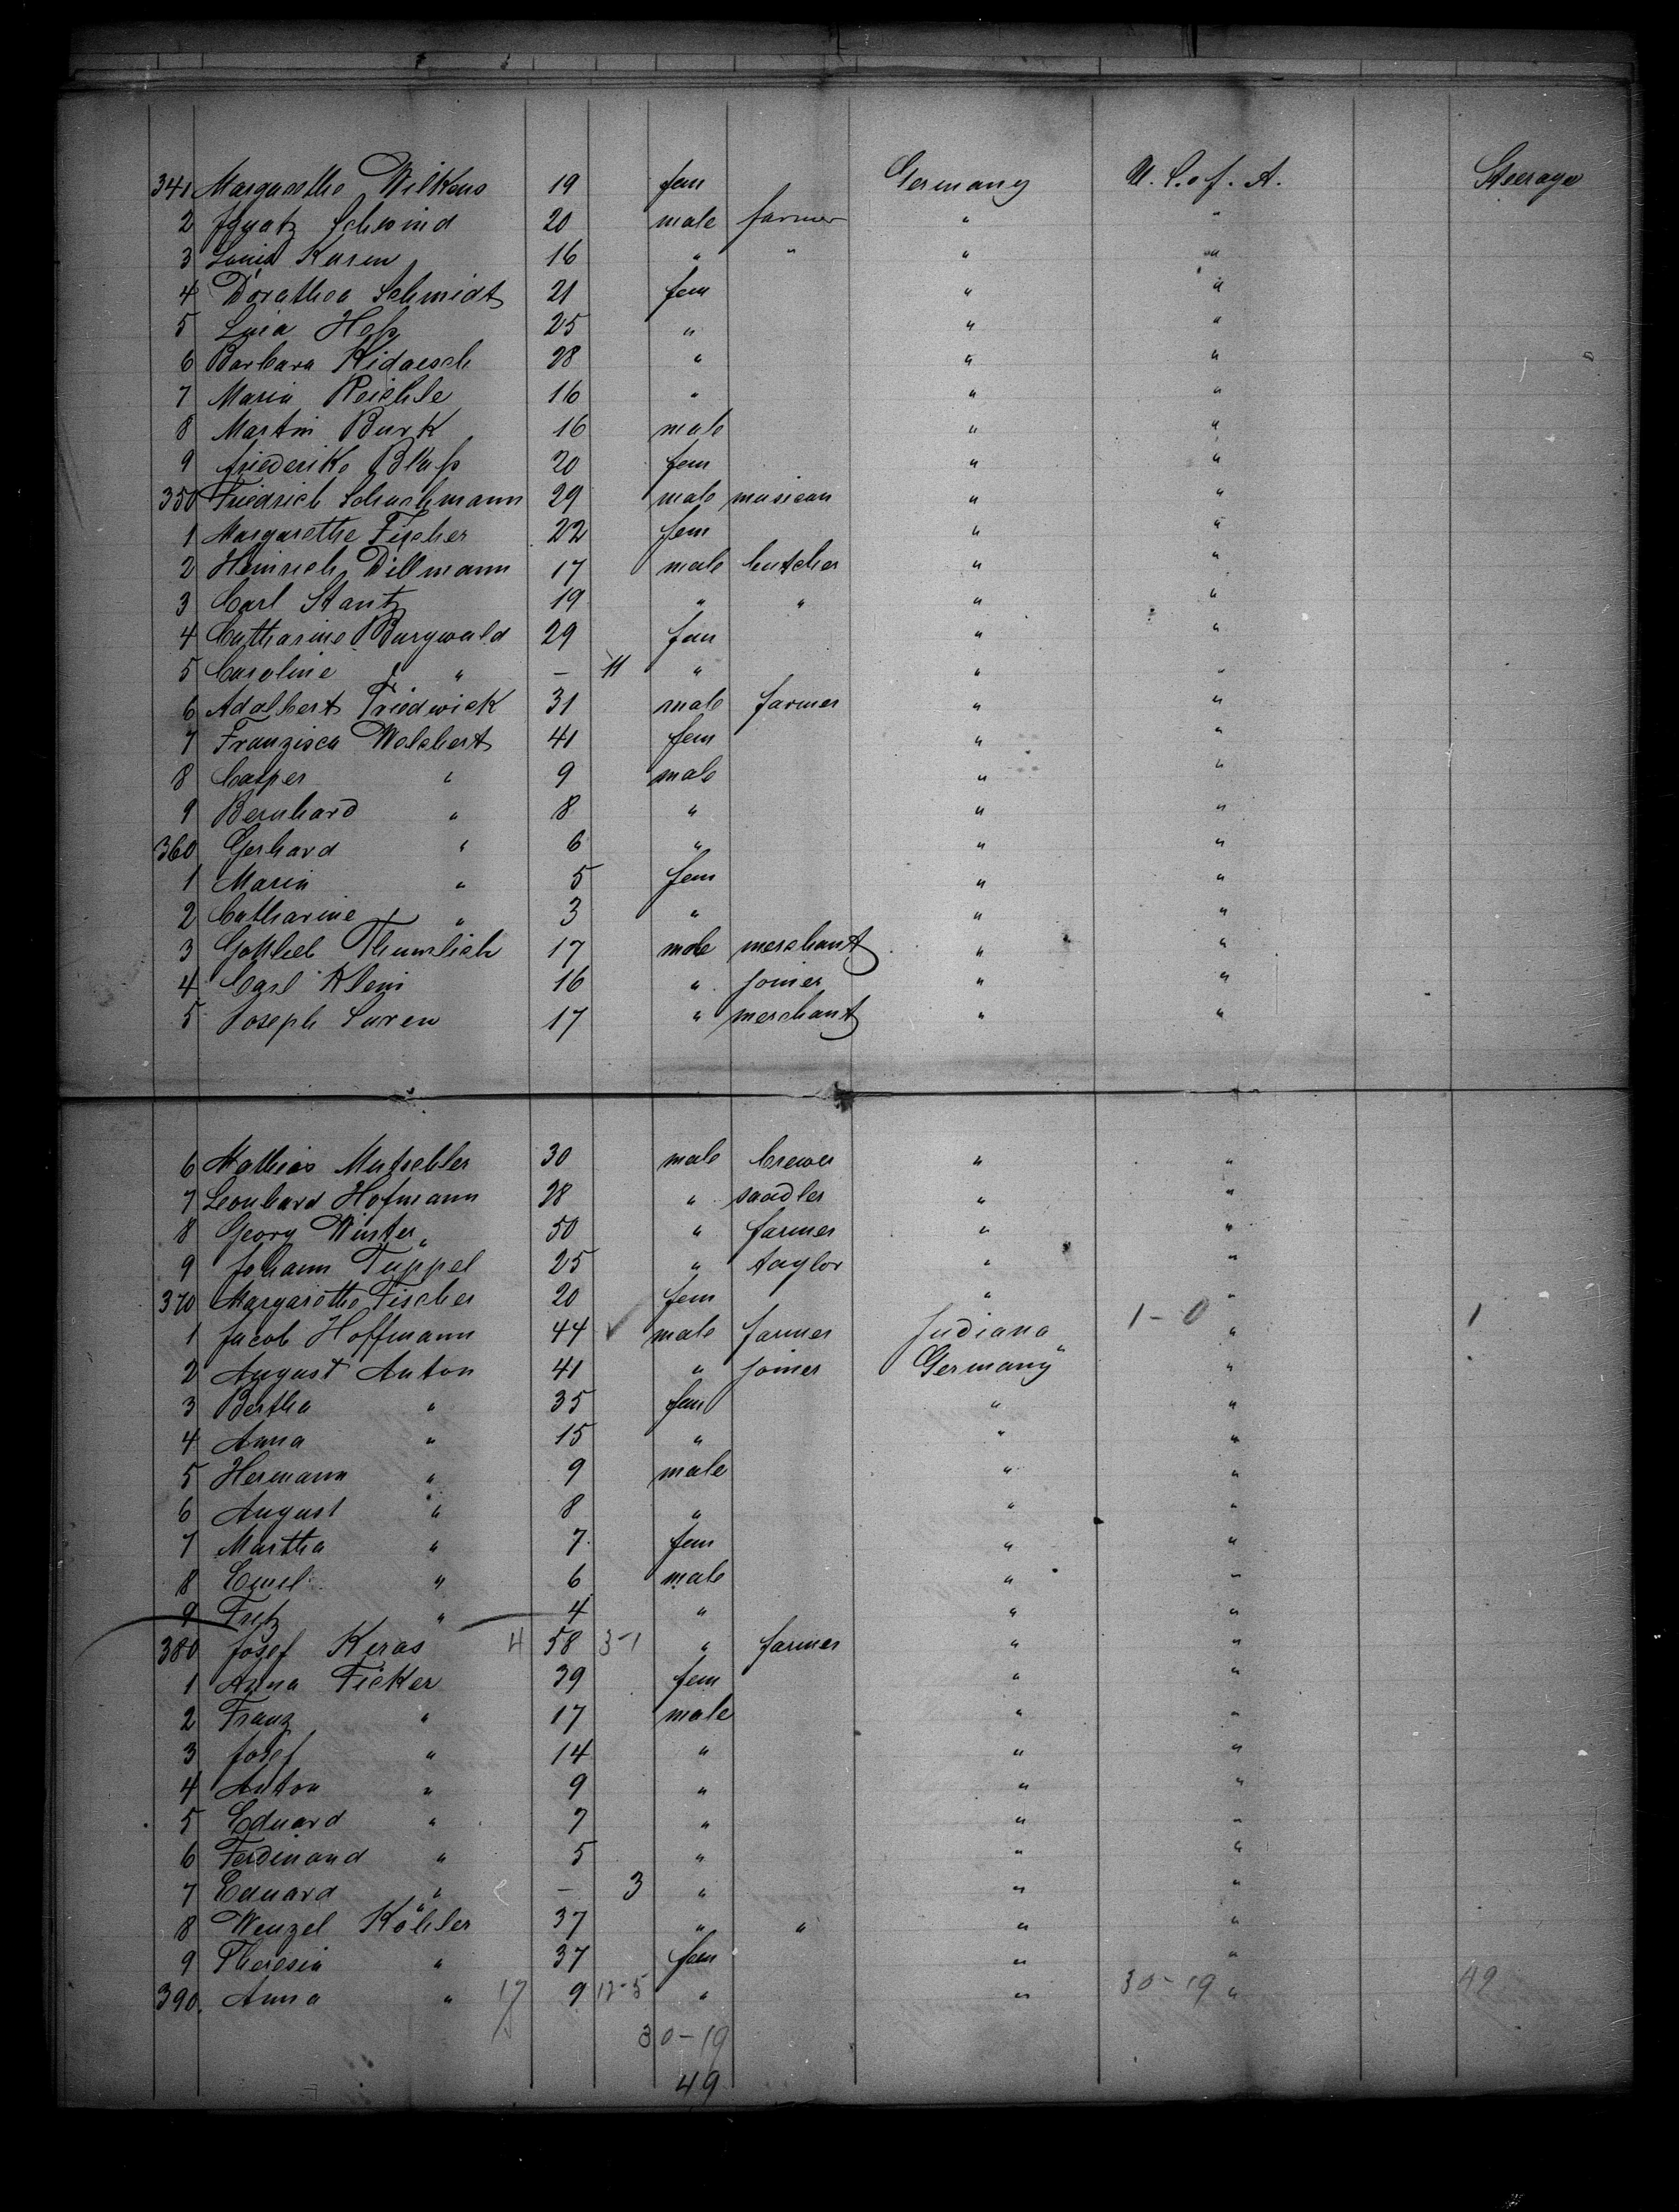 341 Margarethe Wilkens 19 fem Germany U. S. of. A. Steerage
2 Ignatz Schwind 20 male farmer " "
3 Louis Karen 16 " " " "
4 Dorathea Schmidt 21 fem " "
5 Luia Heß 25 " " "
6 Barbara Kidaesch 28 " " "
7 Maria Reichle 16 " " "
8 Martin Burk 16 male " "
9 Friederike Blaß 20 fem " "
350 Friedrich Schuchmann 29 male musican " "
1 Margarethe Fischer 22 fem " "
2 Heinrich Dillmann 17 male butcher " "
3 Carl Stantz 19 " " " "
4 Catharine Burgwald 29 fem " "
5 Caroline " – 11 " " "
6 Adalbert Friedwick 31 male farmer " "
7 Franzisca Welchert 41 fem " "
8 Casper " 9 male " "
9 Bernhard " 8 " " "
360 Gerhard " 6 " " "
1 Maria " 5 fem " "
2 Catharine " 3 " " "
3 Gottlieb Thumlich 17 male merchant " "
4 Carl Klein 16 " joiner " "
5 Joseph Suren 17 " merchant " "
6 Mathias Mutschler 30 male brewer " "
7 Leonhard Hofmann 28 " saadler " "
8 Georg Winter 50 " farmer " "
9 Johann Tüppel 25 " taylor " "
370 Margarethe Fischer 20 fem " "
1 Jacob Hoffmann 44 ✓ male farmer Indiana 1-0 " 1
2 August Anton 41 " joiner Germany "
3 Bertha " 35 fem " "
4 Anna " 15 " " "
5 Hermann " 9 male " "
6 August " 8 " " "
7 Martha " 7 fem " "
8 Emil " 6 male " "
9 Fritz " 4 " " "
380 Josef Keras 4 58 3-1 " farmer " "
1 Anna Ficker 39 fem " "
2 Franz " 17 male " "
3 Josef " 14 " " "
4 Anton " 9 " " "
5 Eduard " 7 " " "
6 Ferdinand " 5 " " "
7 Eduard " – 3 " " "
8 Wenzel Köhler 37 " " " "
9 Theresia " 37 fem " "
390 Anna " 17 9 12-5 " " 30-19 " 49
30-19
49